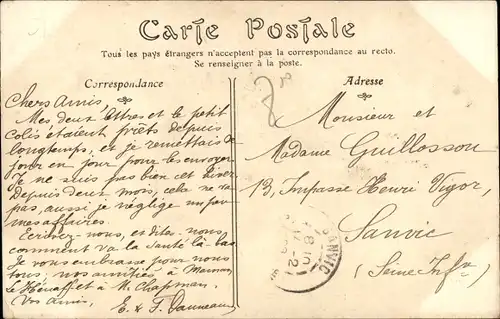 Carte Postale
Tous les pays étrangers n'acceptent pas la correspondance au recto.
Se renseigner à la poste.
Correspondance
Chers Amis,
Mes deux lettres et le petit
colis étaient prêts depuis
longtemps, et je remettais de
jour en jour pour les envoyer.
Je ne suis pas bien et
Depuis deux mois, cela ne va
pas, aussi je néglige un peu
mes affaires.
Ecrivez-nous, et dites-nous
comment va la santé là-bas
Je vous embrasse pour nous
tous; nos amitiés à Maman,
Le Hénaff et à M. Chapman.
Vos amis,
E. & F.
Adresse
Monsieur et
Madame Guillosson
13, Impasse Henri Vigor,
Sanvic
(Seine Infre
SANVIC